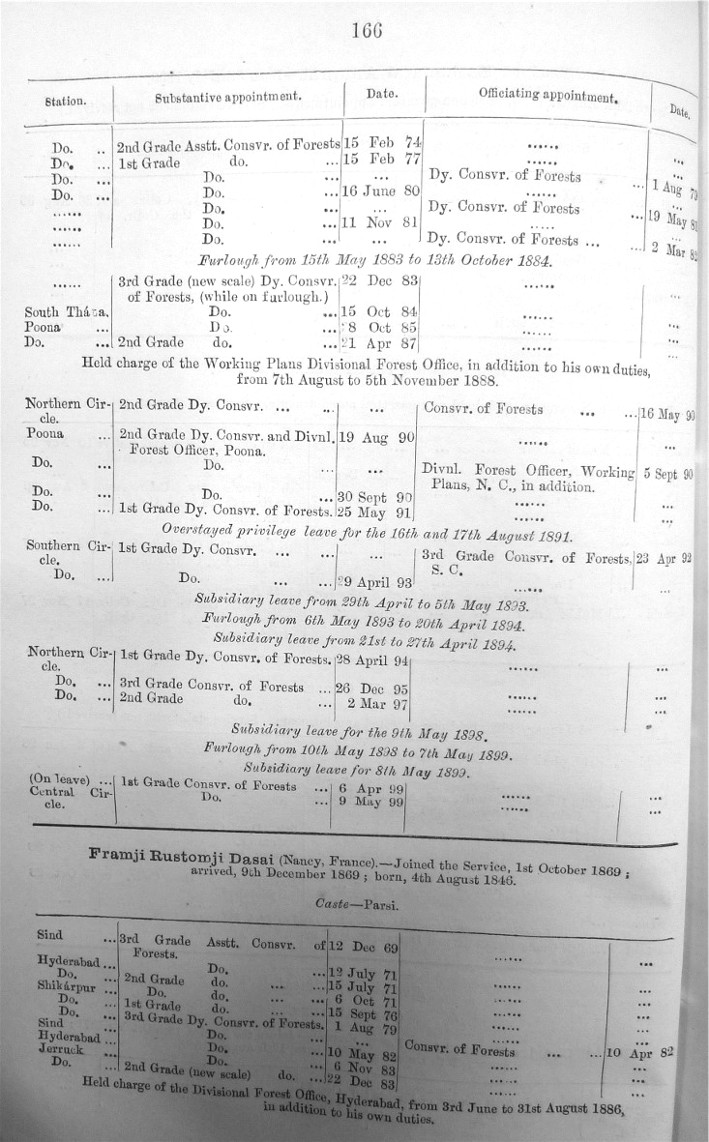 166
Station. Substantive appointment. Date. Officiating appointment. Date.
Do. .. 2nd Grade Asstt. Consvr. of Forests 15 Feb 74 ...... ...
Do. ... 1st Grade do. ... 15 Feb 77 ...... ...
Do. ... Do. ... ... Dy. Consvr. of Forests ... 1 Aug 79
Do. ... Do. ... 16 June 80 ...... ...
...... Do. ... ... Dy. Consvr. of Forests ... 19 May 81
...... Do. ... 11 Nov 81 ..... ...
...... Do. ... ... Dy. Consvr. of Forests ... ... 2 Mar 82
Furlough from 15th May 1883 to 13th October 1884.
...... 3rd Grade (new scale) Dy. Consvr. 22 Dec 83 ...... ...
of Forests, (while on furlough.)
South Thána. Do. ... 15 Oct 84 ...... ...
Poona ... Do. ... 8 Oct 85 ...... ...
Do. ... 2nd Grade do. ... 21 Apr 87 ...... ...
Held charge of the Working Plans Divisional Forest Office, in addition to his own duties,
from 7th August to 5th November 1888.
Northern Cir- 2nd Grade Dy. Consvr. ... ... ... Consvr. of Forests ... ... 16 May 90
cle.
Poona ... 2nd Grade Dy. Consvr. and Divnl. 19 Aug 90 ...... ...
Forest Officer, Poona.
Do. ... Do. ... ... Divnl. Forest Officer, Working 5 Sept 90
Plans, N. C., in addition.
Do. ... Do. ... 30 Sept 90 ...... ...
Do. ... 1st Grade Dy. Consvr. of Forests. 25 May 91 ...... ...
Overstayed privilege leave for the 16th and 17th August 1891.
Southern Cir- 1st Grade Dy. Consvr. ... ... ... 3rd Grade Consvr. of Forests, 23 Apr 92
cle. S. C.
Do. ... Do. ... ... 29 April 93 ...... ...
Subsidiary leave from 29th April to 5th May 1893.
Furlough from 6th May 1893 to 20th April 1894.
Subsidiary leave from 21st to 27th April 1894.
Northern Cir- 1st Grade Dy. Consvr. of Forests. 28 April 94 ...... ...
cle.
Do. ... 3rd Grade Consvr. of Forests ... 26 Dec 95 ...... ...
Do. ... 2nd Grade do. ... 2 Mar 97 ...... ...
Subsidiary leave for the 9th May 1898.
Furlough from 10th May 1898 to 7th May 1899.
Subsidiary leave for 8th May 1899.
(On leave) ... 1st Grade Consvr. of Forests ... 6 Apr 99 ...... ...
Central Cir- Do. ... 9 May 99 ...... ...
cle.
Framji Rustomji Dasai (Nancy, France).—Joined the Service, 1st October 1869 ;
arrived, 9th December 1869 ; born, 4th August 1846.
Caste—Parsi.
Sind ... 3rd Grade Asstt. Consvr. of 12 Dec 69 ...... ...
Forests.
Hyderabad ... Do. ... 12 July 71 ...... ...
Do. ... 2nd Grade do. ... ... 15 July 71 ...... ...
Shikárpur ... Do. do. ... ... 6 Oct 71 ...... ...
Do. ... 1st Grade do. ... ... 15 Sept 76 ...... ...
Do. ... 3rd Grade Dy. Consvr. of Forests. 1 Aug 79 ...... ...
Sind ... Do. ... ... Consvr. of Forests ... ... 10 Apr 82
Hyderabad ... Do. ... 10 May 82 ...... ...
Jerruck ... Do. ... 6 Nov 83 ...... ...
Do. ... 2nd Grade (new scale) do. ... 22 Dec 83 ...... ...
Held charge of the Divisional Forest Office, Hyderabad, from 3rd June to 31st August 1886,
in addition to his own duties.